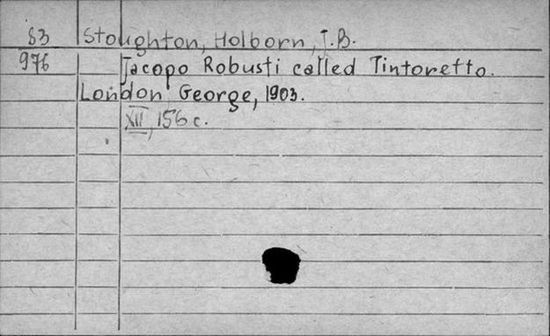 83 Stoughton, Holborn, J.B.
976 Jacopo Robusti called Tintoretto.
London George, 1903.
XII, 156 c.